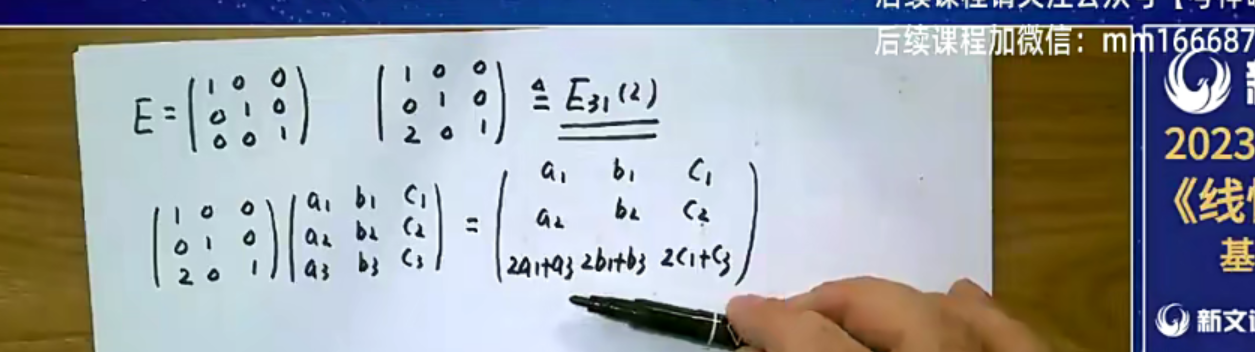 后续课程加微信：mm166687
E = ( 1 0 0 / 0 1 0 / 0 0 1 ) ( 1 0 0 / 0 1 0 / 2 0 1 ) ≜ E₃₁(2)
( 1 0 0 / 0 1 0 / 2 0 1 ) ( a₁ b₁ c₁ / a₂ b₂ c₂ / a₃ b₃ c₃ ) = ( a₁ b₁ c₁ / a₂ b₂ c₂ / 2a₁+a₃ 2b₁+b₃ 2c₁+c₃ )
2023
《线
基
新文